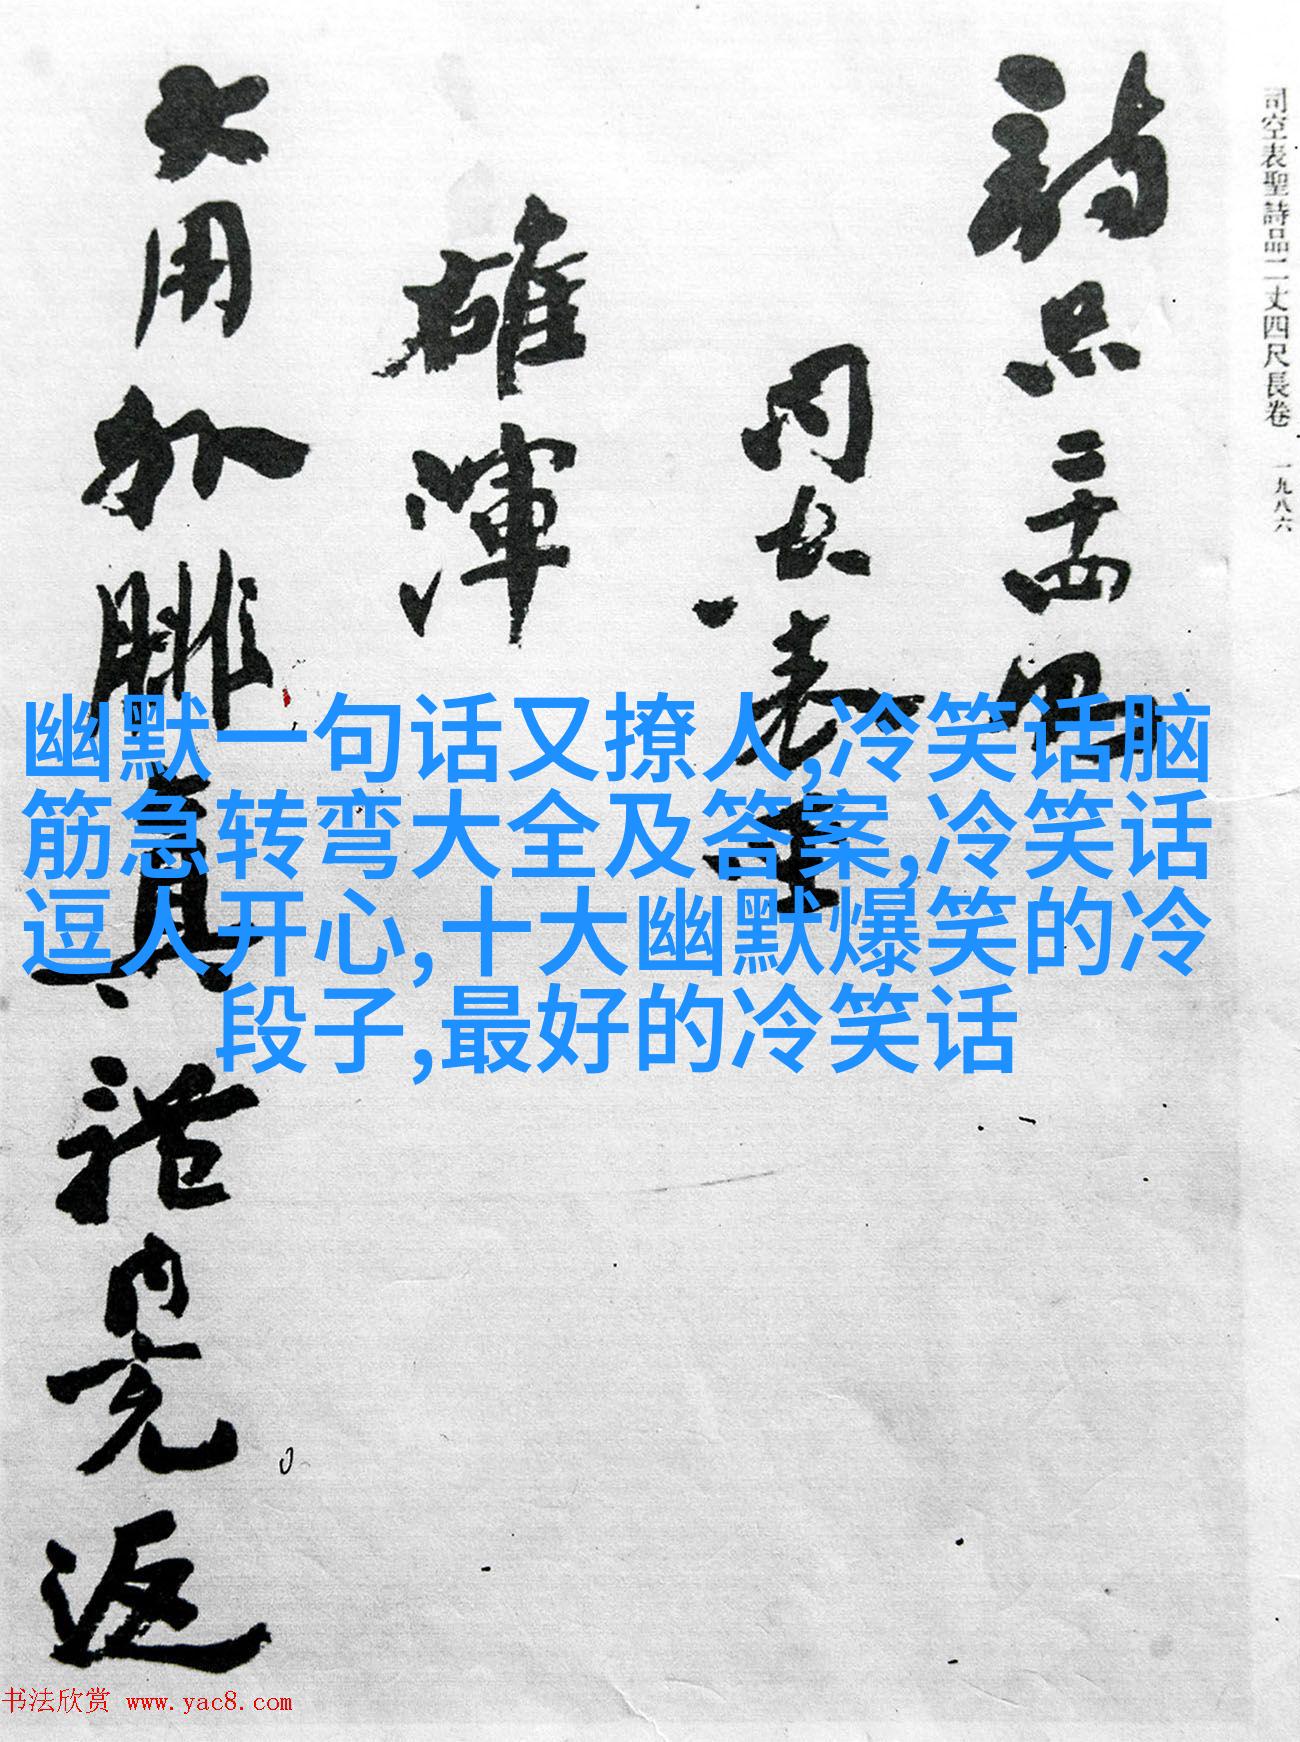 司空表聖詩品二丈四尺長卷 一九八六
詩品二十四
司空表聖
雄渾
大用外腓真體內充返
幽默一句话又撩人,冷笑话脑
筋急转弯大全及答案,冷笑话
逗人开心,十大幽默爆笑的冷
段子,最好的冷笑话
书法欣赏 www.yac8.com